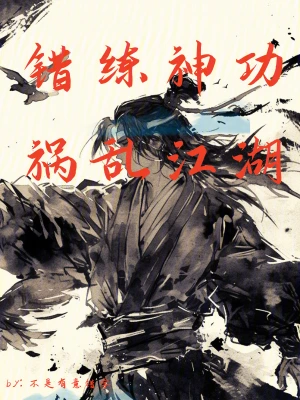 错练神功
祸乱江湖
by:不是有意